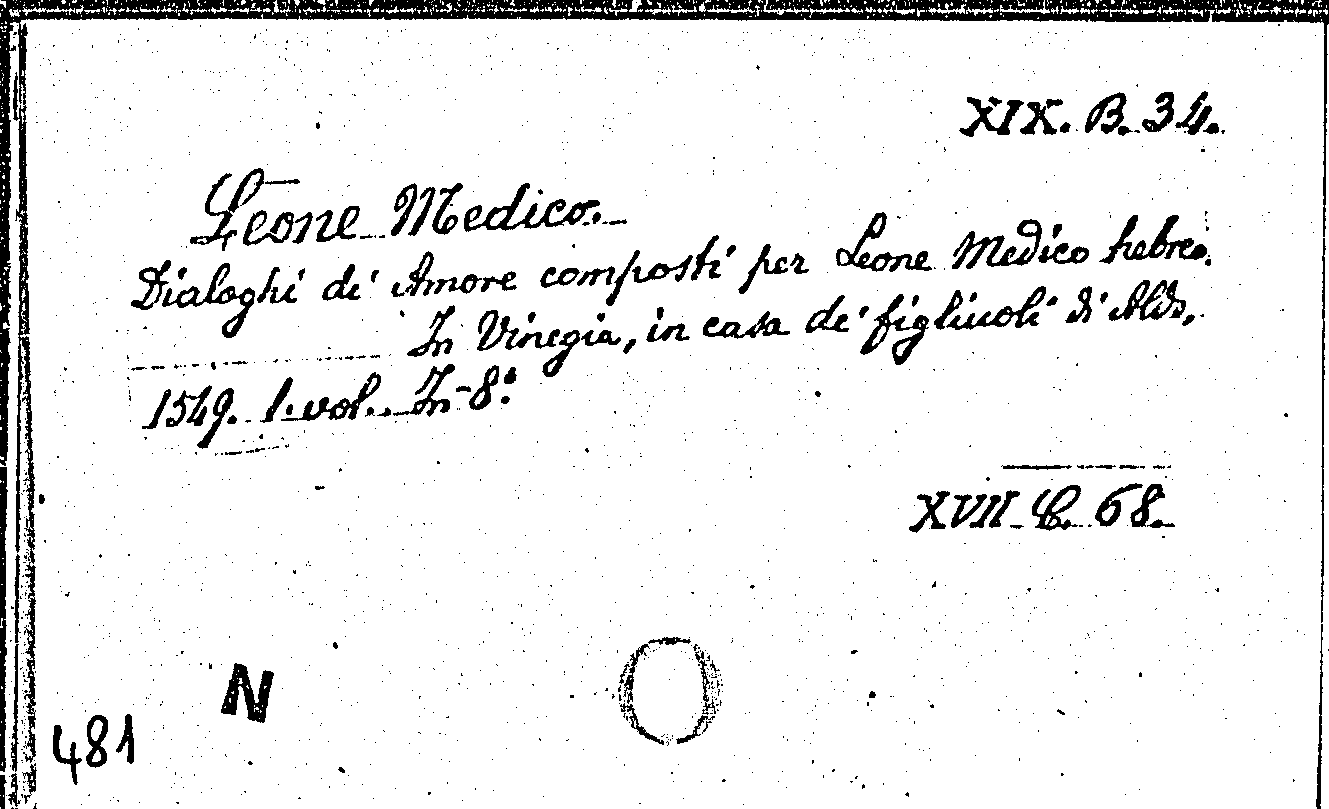 XIX. B. 34.
Leone Medico.
Dialoghi di Amore composti per Leone Medico hebreo.
In Vinegia, in casa de' figliuoli di Aldo,
1549. 1. vol. In-8º.
XVII C. 68.
N
481